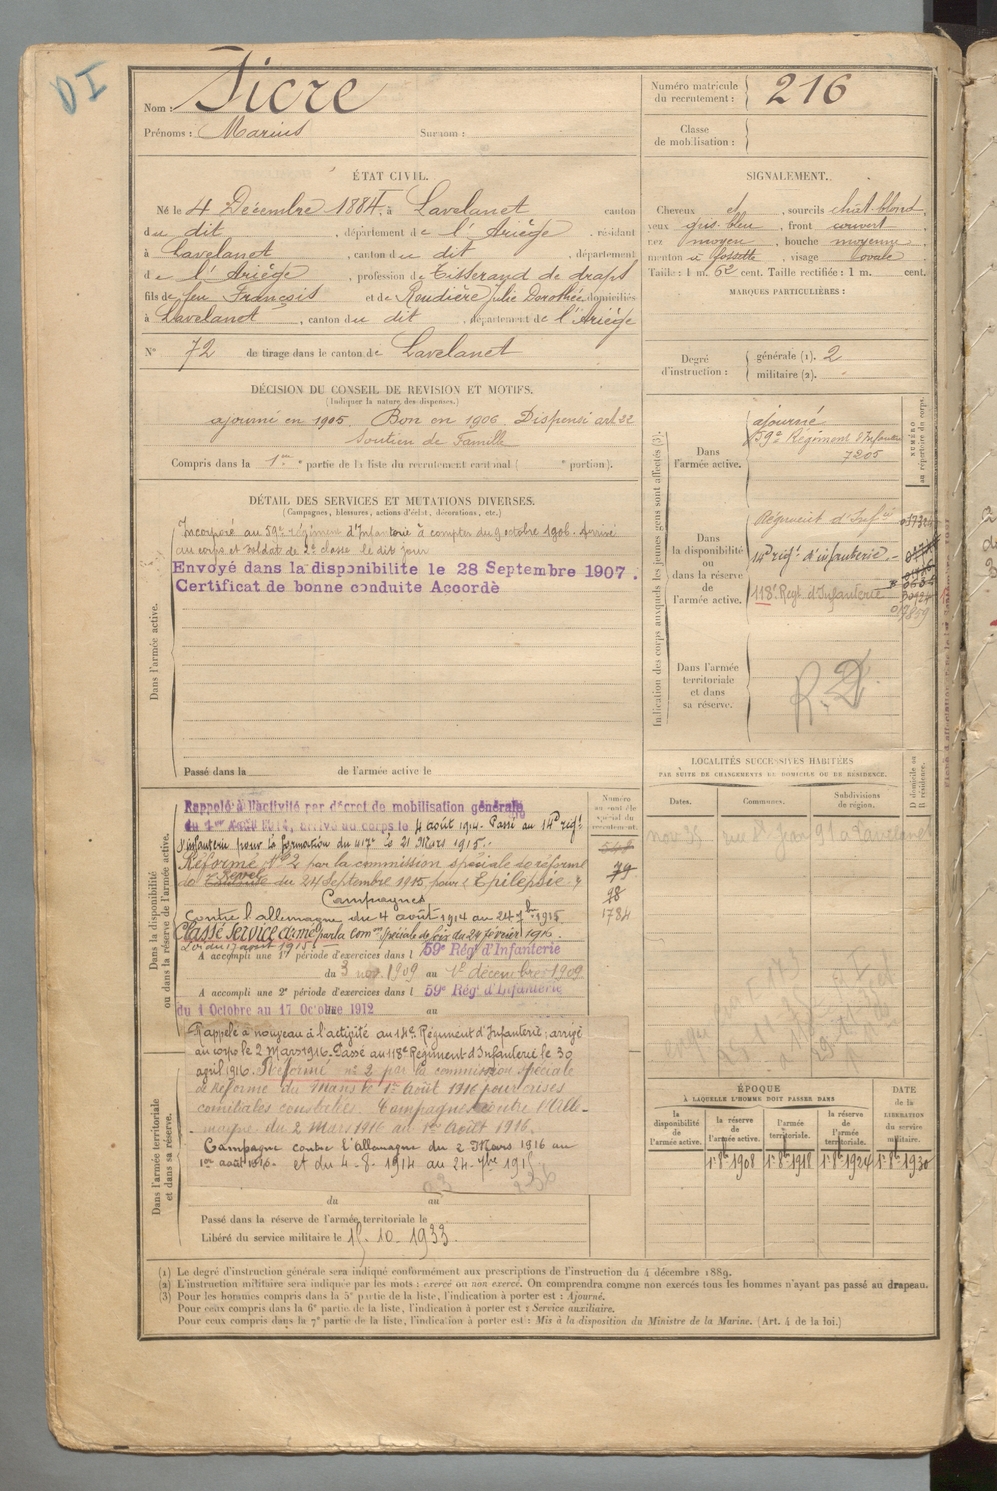 DI
Nom : Sicre
Prénoms : Marius Surnom :
Numéro matricule du recrutement : 216
Classe de mobilisation :
ÉTAT CIVIL.
Né le 4 Décembre 1884, à Lavelanet canton
du dit, département de l'Ariège, résidant
à Lavelanet, canton du dit, département
de l'Ariège, profession de Tisserand de draps
fils de feu François et de Roudière Julie Dorothée domiciliés
à Lavelanet, canton du dit, département de l'Ariège
N° 72 de tirage dans le canton de Lavelanet
SIGNALEMENT.
Cheveux et, sourcils chât-blond,
yeux gris-bleu, front couvert
nez moyen, bouche moyenne
menton à fossette, visage ovale
Taille : 1 m. 62 cent. Taille rectifiée : 1 m. cent.
MARQUES PARTICULIÈRES :
Degré d'instruction : générale (1). 2
militaire (2).
DÉCISION DU CONSEIL DE REVISION ET MOTIFS.
(Indiquer la nature des dispenses.)
ajourné en 1905 Bon en 1906. Dispensé art 22
Soutien de Famille
Compris dans la 1re partie de la liste du recrutement cantonal ( e portion).
DÉTAIL DES SERVICES ET MUTATIONS DIVERSES.
(Campagnes, blessures, actions d'éclat, décorations, etc.)
Dans l'armée active.
Incorporé au 59e régiment d'Infanterie à compter du 9 octobre 1906. Arrivé
au corps et soldat de 2e classe le dit jour
Envoyé dans la disponibilite le 28 Septembre 1907.
Certificat de bonne conduite Accordé
Passé dans la de l'armée active le
Indication des corps auxquels les jeunes gens sont affectés (3).
NUMÉRO au répertoire du corps.
Dans l'armée active.
ajourné
59e Régiment d'Infanterie
7205
Dans la disponibilité ou dans la réserve de l'armée active.
Régiment d'Infie
14e régt d'infanterie
118e Regt d'Infanterie
Dans l'armée territoriale et dans sa réserve.
R. D.
LOCALITÉS SUCCESSIVES HABITÉES
PAR SUITE DE CHANGEMENTS DE DOMICILE OU DE RÉSIDENCE.
Dates. Communes. Subdivisions de région.
D domicile ou R résidence.
Dans la disponibilité ou dans la réserve de l'armée active.
Rappelé à l'activité par décret de mobilisation générale
du 1er Août 1914, arrivé au corps le 4 août 1914. Passé au 14e régt
d'infanterie pour la formation du 417e le 21 Mars 1915.
Réformé N° 2 par la commission spéciale de réforme
de Revel du 24 Septembre 1915 pour "Epilepsie"
Campagnes
Contre l'allemagne du 4 août 1914 au 24 7bre 1915.
Classé Service armé par la Comon Spéciale de Foix du 24 février 1916.
Loi du 17 août 1915.
A accompli une 1re période d'exercices dans l 59e Rég. d'Infanterie
du 3 nov. 1909 au 1er décembre 1909
A accompli une 2e période d'exercices dans l 59e Rég. d'Infanterie
du 1 Octobre au 17 Octobre 1912 au
79
98
1784
Dans l'armée territoriale et dans sa réserve.
Rappelé à nouveau à l'activité au 14e Régiment d'Infanterie, arrivé
au corps le 2 Mars 1916. Passé au 118e Régiment d'Infanterie le 30
avril 1916. Réformé n° 2 par la commission spéciale
de Réforme du Mans le 1er Août 1916 pour crises
comitiales constatées. Campagnes contre l'Alle-
magne du 2 Mars 1916 au 1er Août 1916.
Campagne contre l'allemagne du 2 Mars 1916 au
1er août 1916. et du 4-8-1914 au 24-7bre 1915
du au
Passé dans la réserve de l'armée territoriale le
Libéré du service militaire le 15-10-1933.
ÉPOQUE
À LAQUELLE L'HOMME DOIT PASSER DANS
DATE de la LIBÉRATION du service militaire.
la disponibilité de l'armée active.
la réserve de l'armée active.
l'armée territoriale.
la réserve de l'armée territoriale.
1er 8bre 1908 1er 8bre 1918 1er 8bre 1924 1er 8bre 1930
(1) Le degré d'instruction générale sera indiqué conformément aux prescriptions de l'instruction du 4 décembre 1889.
(2) L'instruction militaire sera indiquée par les mots : exercé ou non exercé. On comprendra comme non exercés tous les hommes n'ayant pas passé au drapeau.
(3) Pour les hommes compris dans la 5e partie de la liste, l'indication à porter est : Ajourné.
Pour ceux compris dans la 6e partie de la liste, l'indication à porter est : Service auxiliaire.
Pour ceux compris dans la 7e partie de la liste, l'indication à porter est : Mis à la disposition du Ministre de la Marine. (Art. 4 de la loi.)